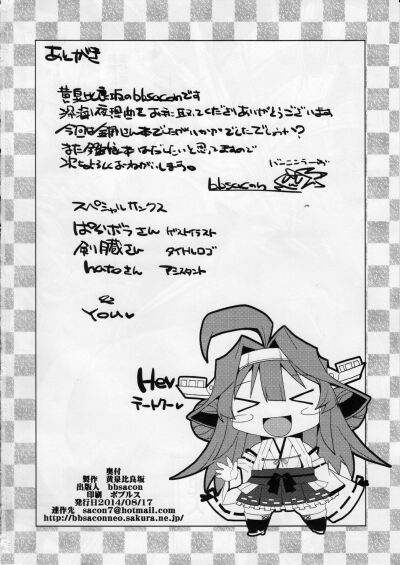 あとがき
黄泉比良坂のbbsaconです
深海夜想曲をお手に取ってくださりありがとうございます
今回は金剛さん本でしたがいかがでしたでしょうか?
また艦これ本はだしたいと思ってますので
次もよろしくおねがいします。
bbsacon
スペシャルサンクス
ぱいボラさん ゲストイラスト
剣臓さん タイトルロゴ
hatoさん アシスタント
&
You♥
Hey
テートクー♥
奥付
製作 黄泉比良坂
出版人 bbsacon
印刷 ポプルス
発行日2014/08/17
連作先 sacon7@hotmail.com
http://bbsaconneo.sakura.ne.jp/